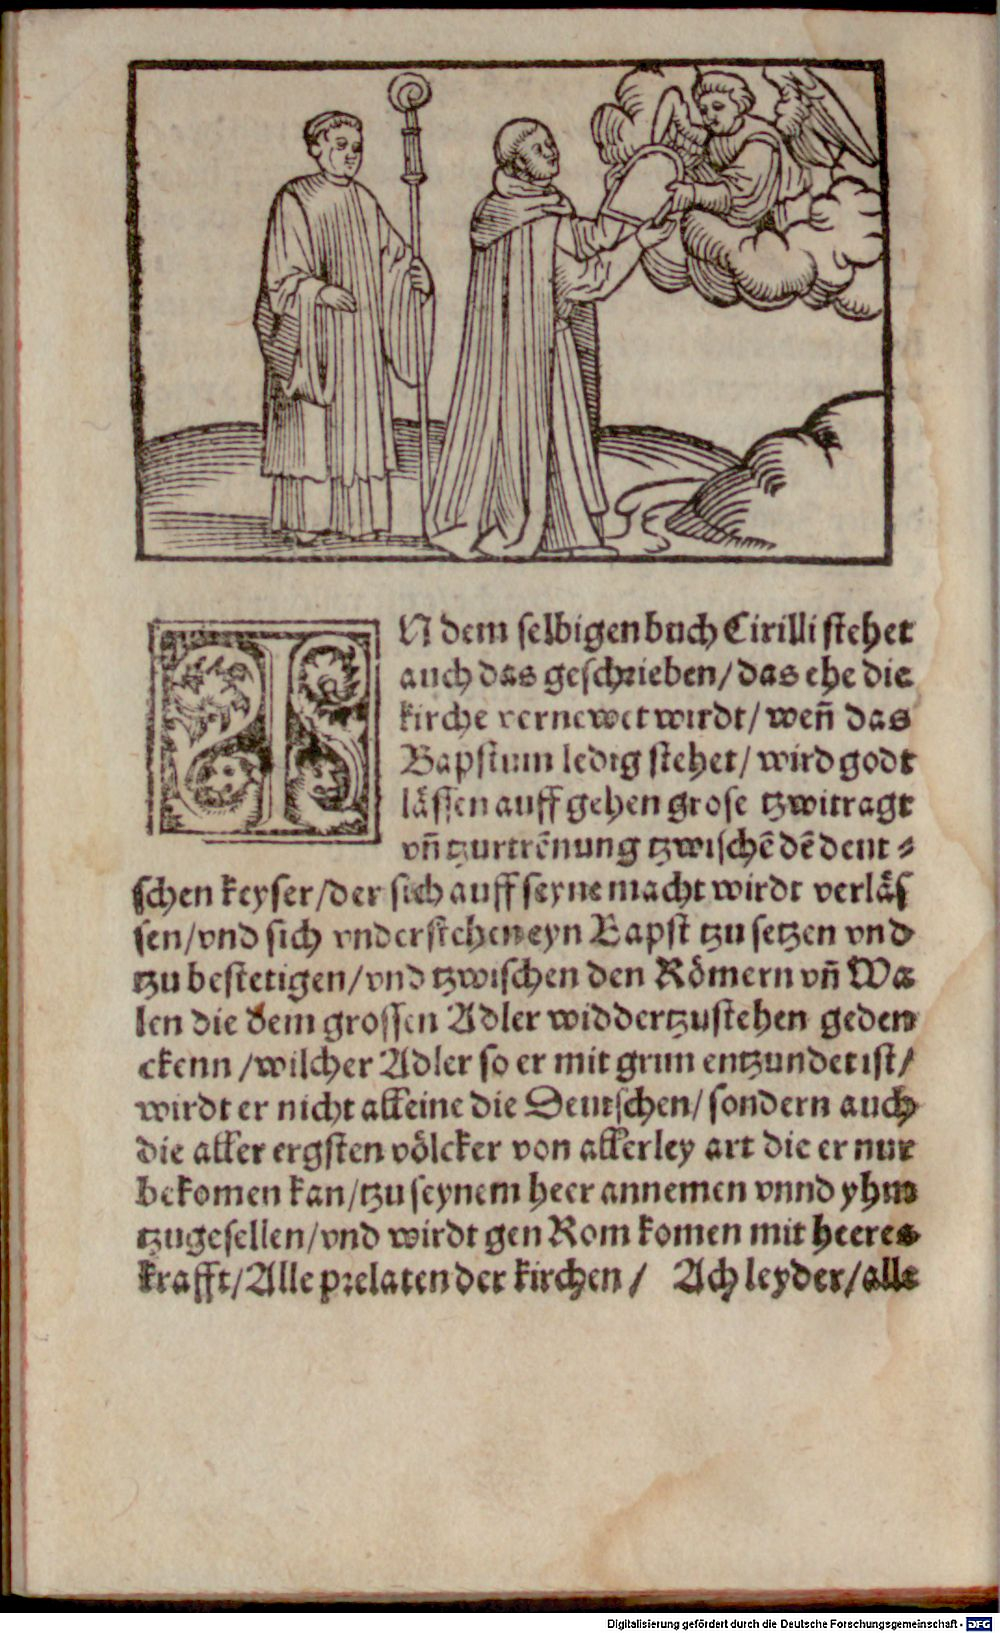 IN dem selbigen buch Cirilli stehet
auch das geschrieben/ das ehe die
kirche vernewet wirdt/ wen̄ das
Bapstum ledig stehet/ wird godt
lassen auff gehen grose tzwitragt
vn̄ tzurtrēnung tzwischē dē deut⸗
schen keyser/ der sich auff seyne macht wirdt verlas
sen/ vnd sich vnderstehen eyn Bapst tzu setzen vnd
tzu bestetigen/ vnd tzwischen den Römern vn̄ Wa
len die dem grossen Adler widdertzustehen geden
ckenn/ wilcher Adler so er mit grim entzundet ist/
wirdt er nicht alleine die Deutschen/ sondern auch
die aller ergsten völcker von allerley art die er nur
bekomen kan/ tzu seynem heer annemen vnnd yhm
tzugesellen/ vnd wirdt gen Rom komen mit heeres
krafft/ Alle prelaten der kirchen/ Ach leyder/ alle
Digitalisierung gefördert durch die Deutsche Forschungsgemeinschaft - DFG